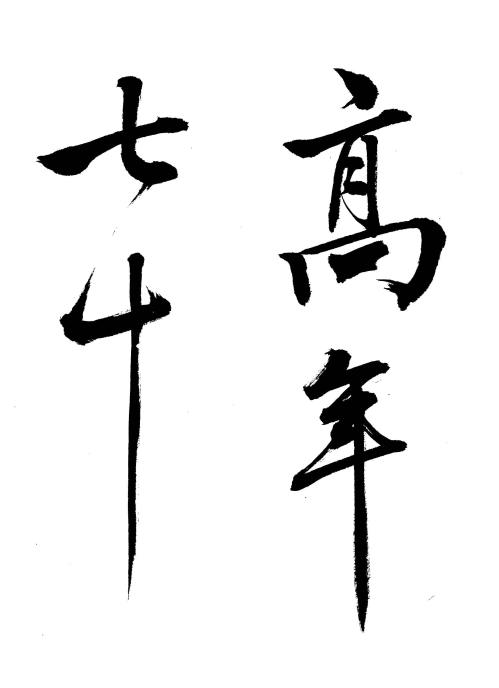 高年
七十